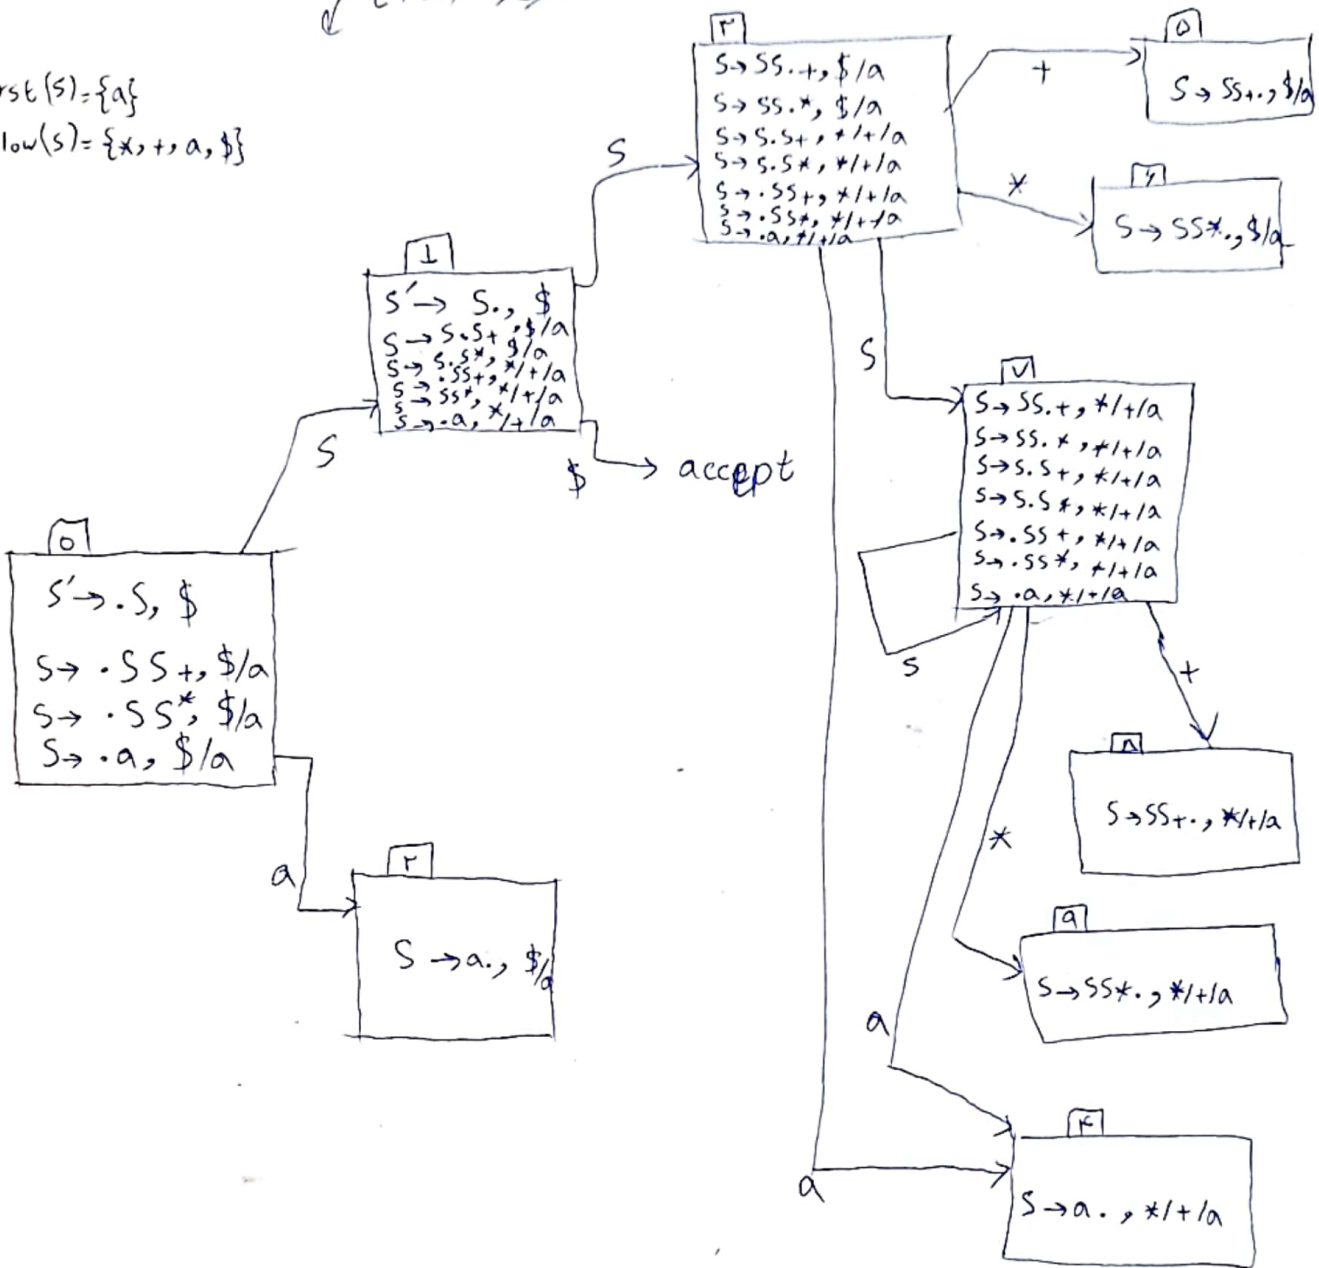 rst(S)={a}
low(S)={*,+,a,$}
۰
S'→.S, $
S→ .SS+, $/a
S→ .SS*, $/a
S→ .a, $/a
S
a
۲
S →a., $/a
1
S'→ S., $
S→S.S+, $/a
S→S.S*, $/a
S→.SS+, */+/a
S→SS*, */+/a
S→.a, */+/a
$
accept
S
۳
S→SS.+, $/a
S→SS.*, $/a
S→S.S+, */+/a
S→S.S*, */+/a
S→.SS+, */+/a
S→.SS*, */+/a
S→.a, */+/a
+
۵
S→SS+., $/a
*
۶
S→SS*., $/a
S
۷
S→SS.+, */+/a
S→SS.*, */+/a
S→S.S+, */+/a
S→S.S*, */+/a
S→.SS+, */+/a
S→.SS*, */+/a
S→.a, */+/a
S
+
۸
S→SS+., */+/a
*
۹
S→SS*., */+/a
a
a
۴
S→a., */+/a